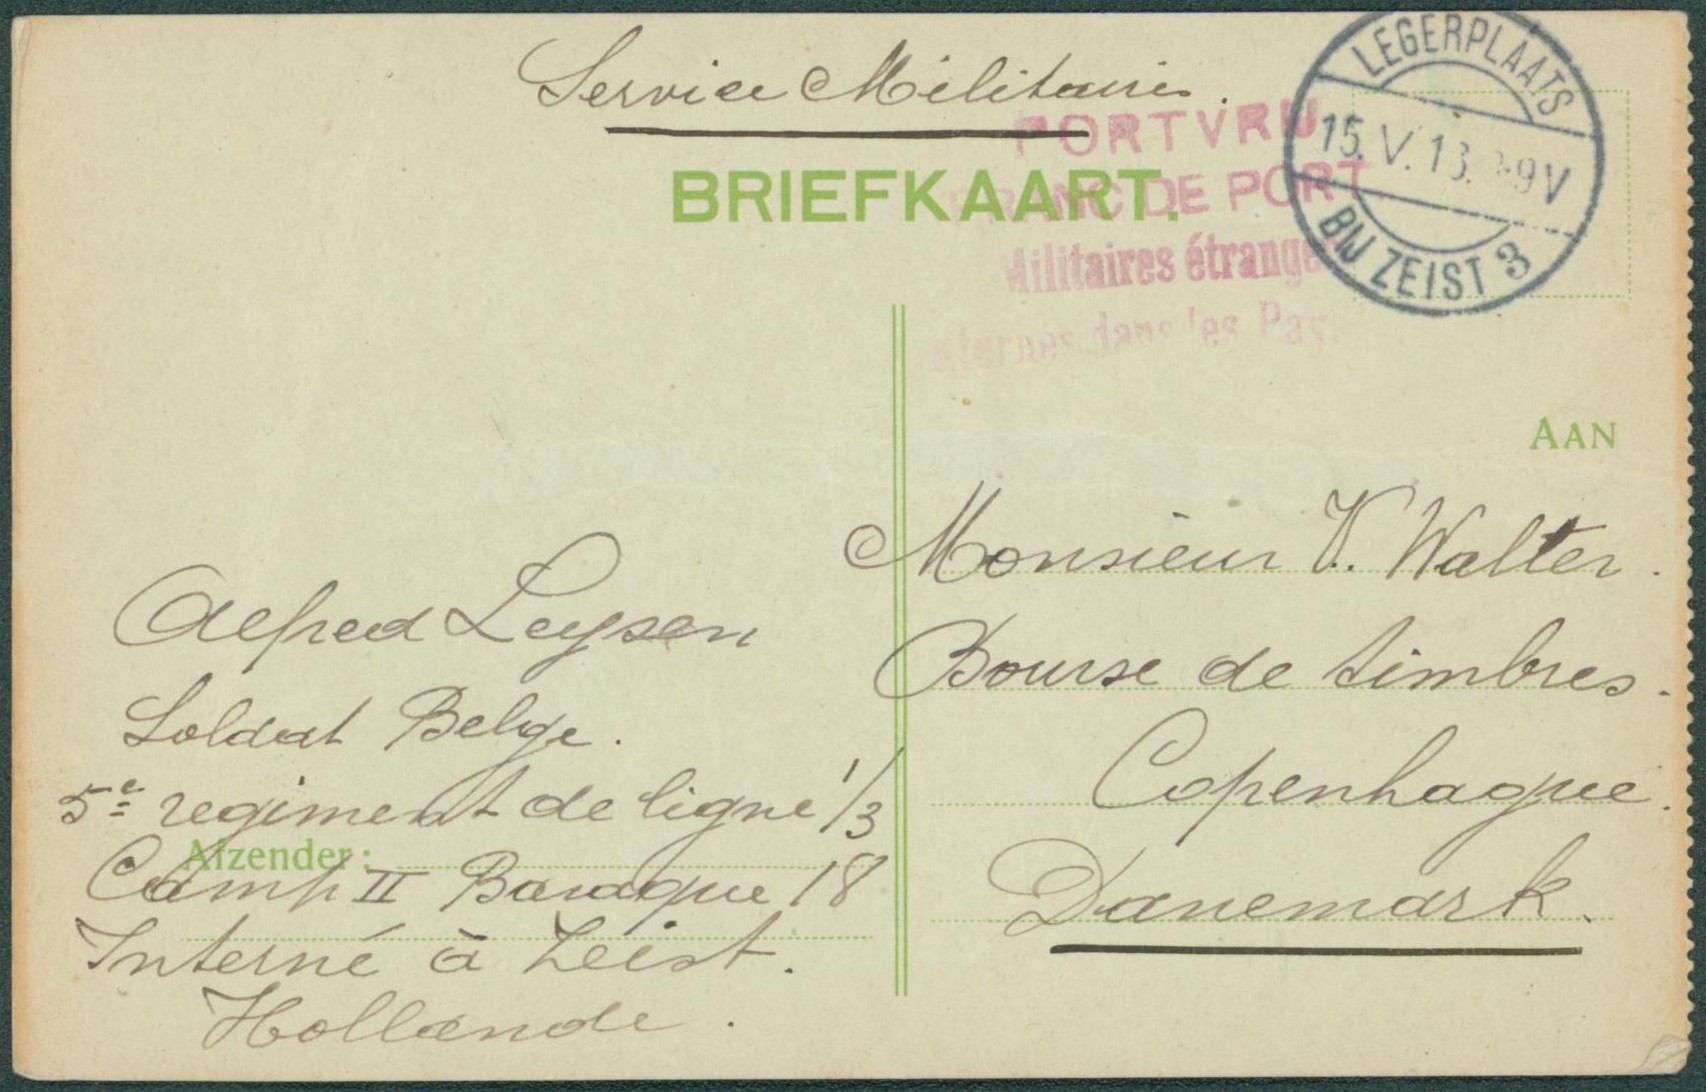 Service Militaire.
BRIEFKAART.
PORTVRIJ
FRANC DE PORT
Militaires étrangers
internés dans les Pays
LEGERPLAATS
15. V. 18. 8-9V
BIJ ZEIST 3
AAN
Monsieur V. Walter.
Bourse de timbres.
Copenhague.
Danemark.
Alfred Leysen
Soldat Belge.
5e regiment de ligne 1/3
Afzender:
Camp II Baraque 18
Interné à Zeist.
Hollande.